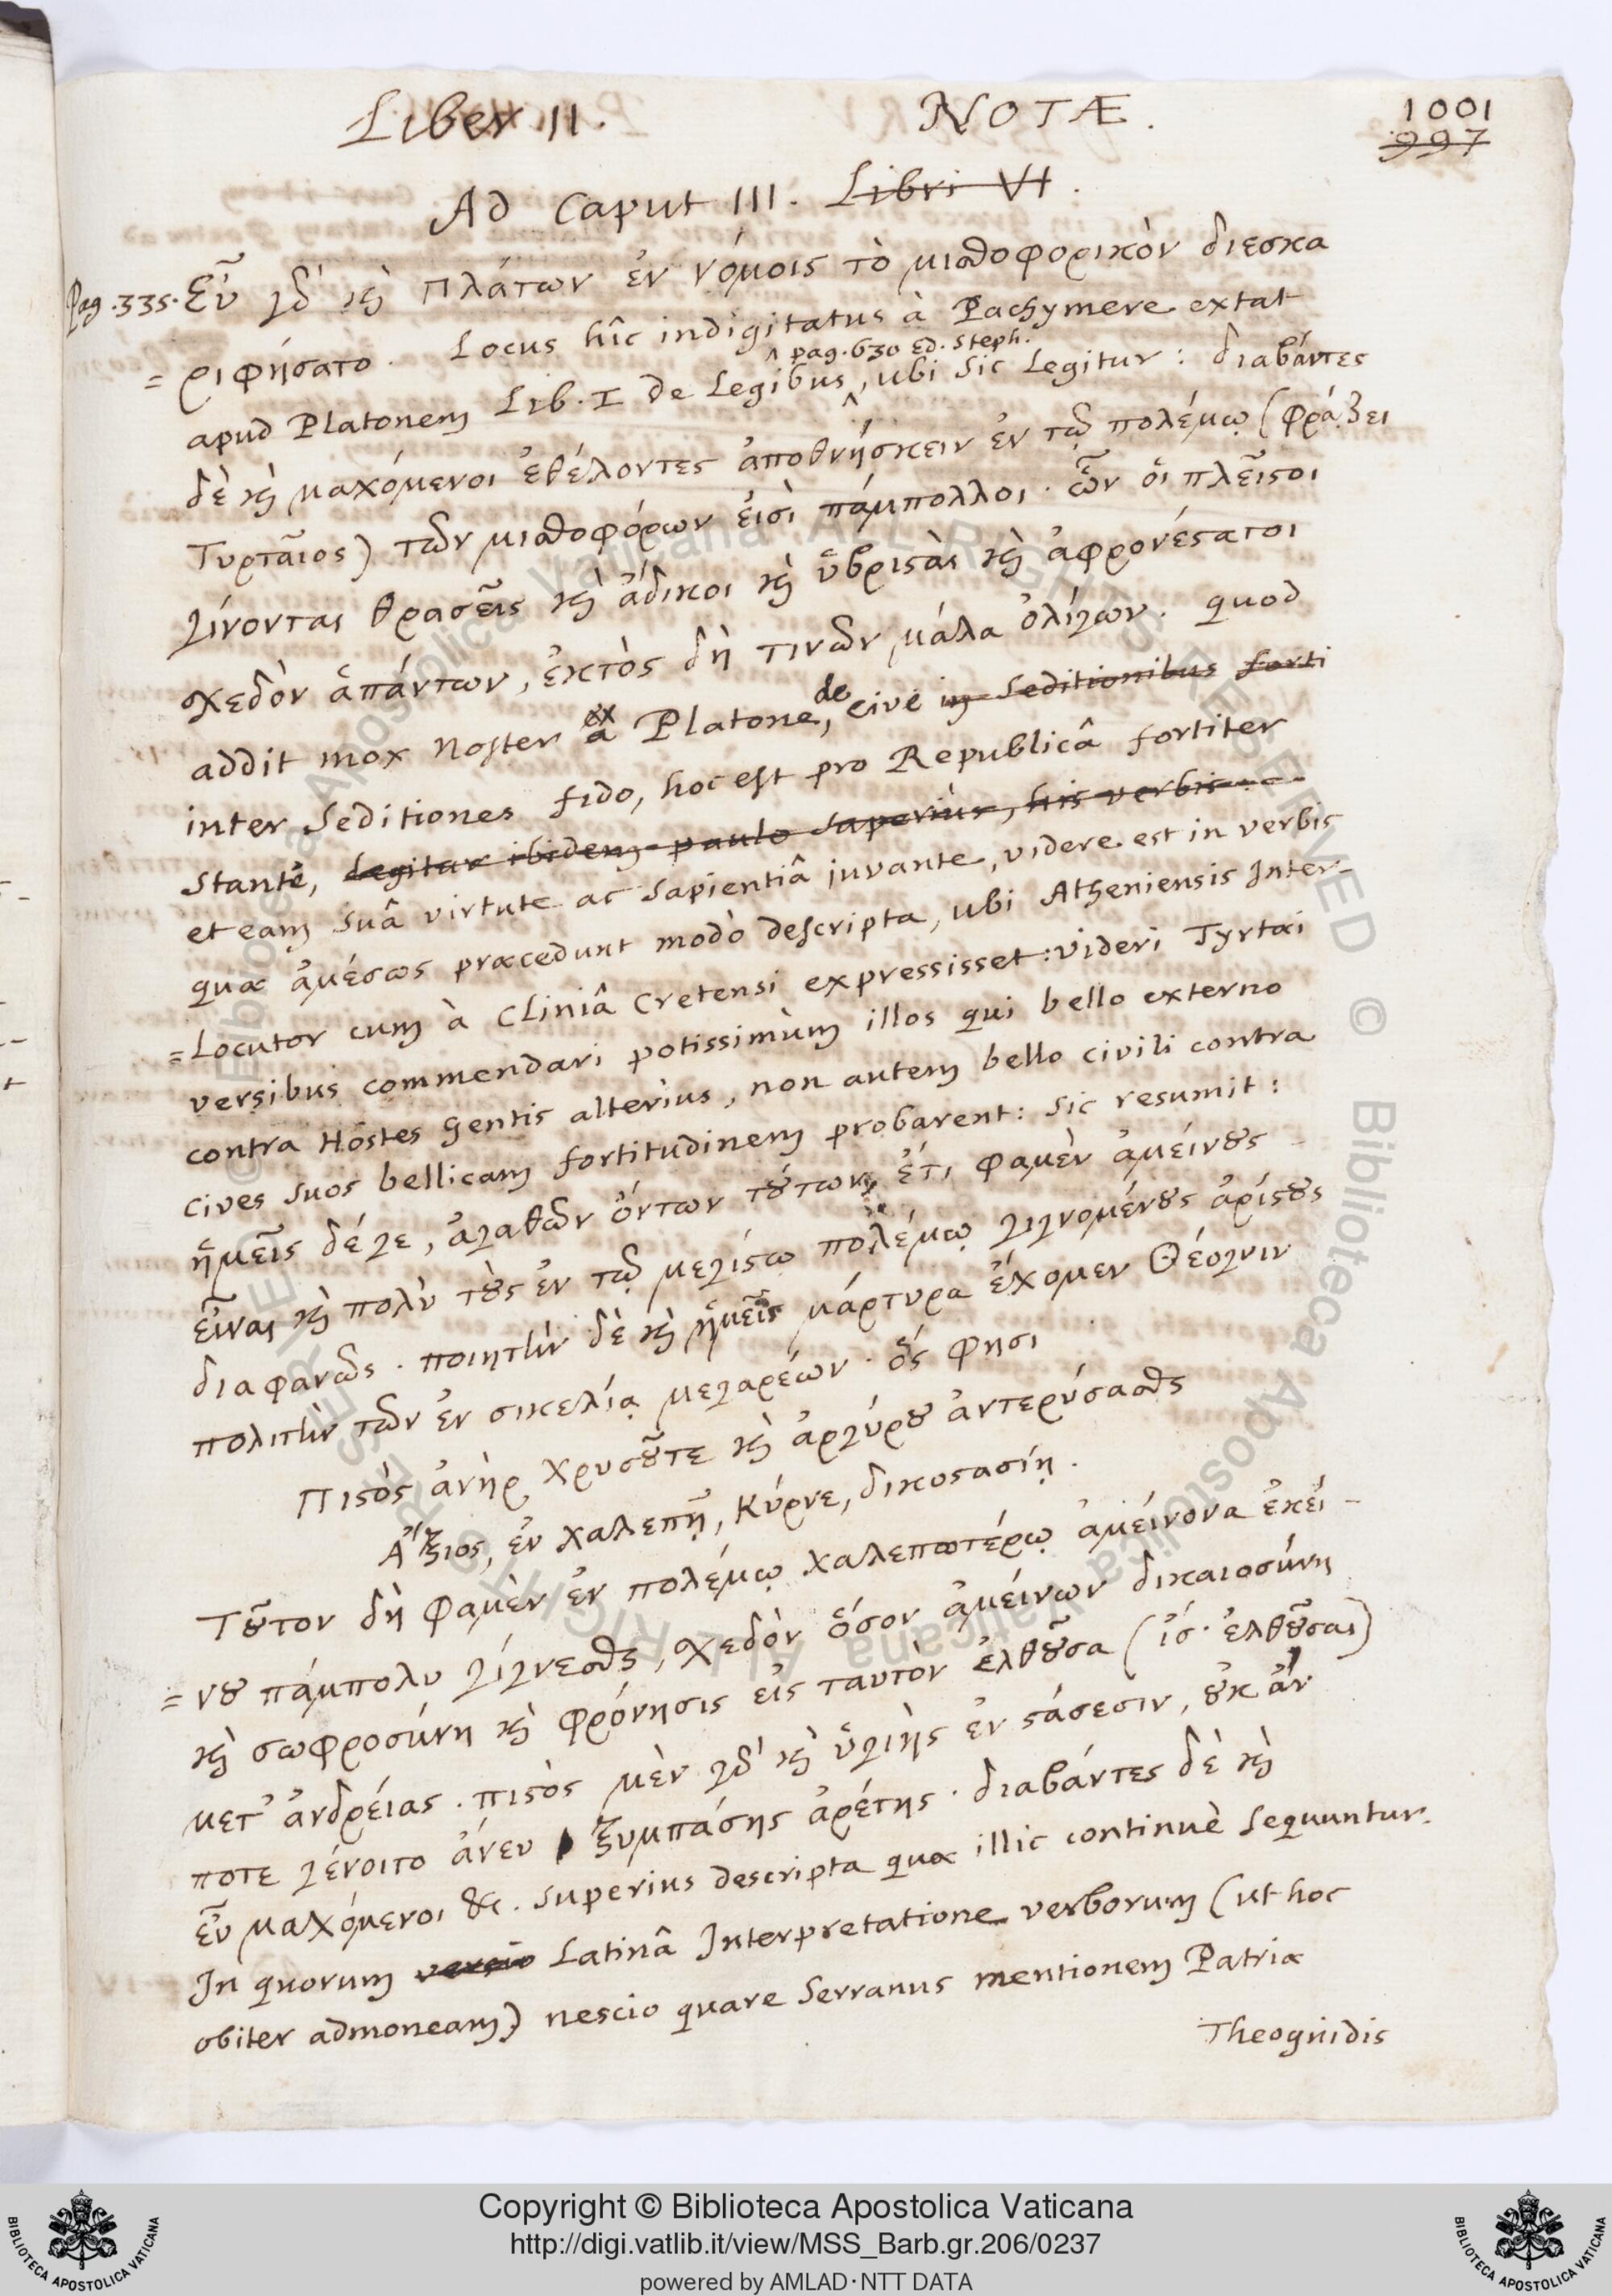 Liber II. NOTÆ. 1001
997
Ad Caput III. Libri VI.
Pag. 335. Εὖ γδ̀ ϗ̀ Πλάτων ἐν νόμοις τὸ μισθοφορικὸν διεσκα
= ριφήσατο. Locus hîc indigitatus à Pachymere extat
pag. 630 Ed. Steph.
apud Platonem Lib. I de Legibus, ubi sic Legitur: διαβάντες
δὲ ϗ̀ μαχόμενοι ἐθέλοντες ἀποθνήσκειν ἐν τῷ πολέμῳ (φράζει
Τυρταῖος) τῶν μισθοφόρων εἰσὶ πάμπολλοι· ὧν οἱ πλεῖϛοι
γίνονται θρασεῖς ϗ̀ ἄδικοι ϗ̀ ὑβριϛαὶ ϗ̀ ἀφρονέϛατοι
σχεδὸν ἁπάντων, ἐκτὸς δή τινῶν μάλα ὀλίγων. quod
addit mox Noster ex Platone, de cive in seditionibus forti
inter Seditiones fido, hoc est pro Republicâ fortiter
Stante, Legitur ibidem paulo superiùs, his verbis
et eam suâ virtute ac sapientiâ juvante, videre est in verbis
quæ ἀμέσως præcedunt modò descripta, ubi Atheniensis Inter-
= Locutor cum à Cliniâ Cretensi expressisset: videri Tyrtæi
versibus commendari potissimùm illos qui bello externo
contra Hostes gentis alterius, non autem bello civili contra
cives suos bellicam fortitudinem probarent: sic resumit:
ἡμεῖς δέ γε, ἀγαθῶν ὄντων τȣ́των, ἔτι φαμὲν ἀμείνȣς
εἶναι ϗ̀ πολὺ τȣ̀ς ἐν τῷ μεγίϛῳ πολέμῳ γιγνομένȣς ἀρίϛȣς
διαφανῶς. ποιητὴν δὲ ϗ̀ ἡμεῖς μάρτυρα ἔχομεν Θέογνιν
πολίτην τῶν ἐν σικελίᾳ μεγαρέων. ὅς φησι
Πιϛὸς ἀνὴρ χρυσȣ͂τε ϗ̀ ἀργύρȣ ἀντερύσασθαι
Ἄξιος, ἐν χαλεπῇ, Κύρνε, δικοϛασίῃ.
Τȣ͂τον δὴ φαμὲν ἐν πολέμῳ χαλεπωτέρῳ ἀμείνονα ἐκεί-
= νȣ πάμπολυ γίγνεσθαι, σχεδὸν ὅσον ἀμείνων δικαιοσύνη
ϗ̀ σωφροσύνη ϗ̀ φρόνησις εἰς ταυτὸν ἐλθȣ͂σα (ἴσ. ἐλθȣ͂σαι)
μετ' ἀνδρείας. πιϛὸς μὲν γδ̀ ϗ̀ ὑγιὴς ἐν ϛάσεσιν, ȣ̓κ ἄν
ποτε γένοιτο ἄνευ ξυμπάσης ἀρέτης. διαβάντες δὲ ϗ̀
εὖ μαχόμενοι &c. superius descripta quæ illic continuè sequuntur.
In quorum versio Latinâ Interpretatione verborum (ut hoc
obiter admoneam) nescio quare Serranus mentionem Patriæ
Theognidis
Copyright © Biblioteca Apostolica Vaticana
http://digi.vatlib.it/view/MSS_Barb.gr.206/0237
powered by AMLAD·NTT DATA